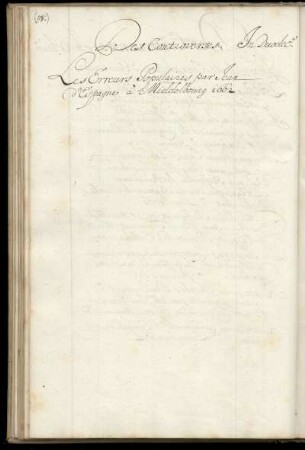 Des Controverses, In Duodec.º
Les Erreurs Populaires par Jean
d'Espagne à Middelbourg 1662